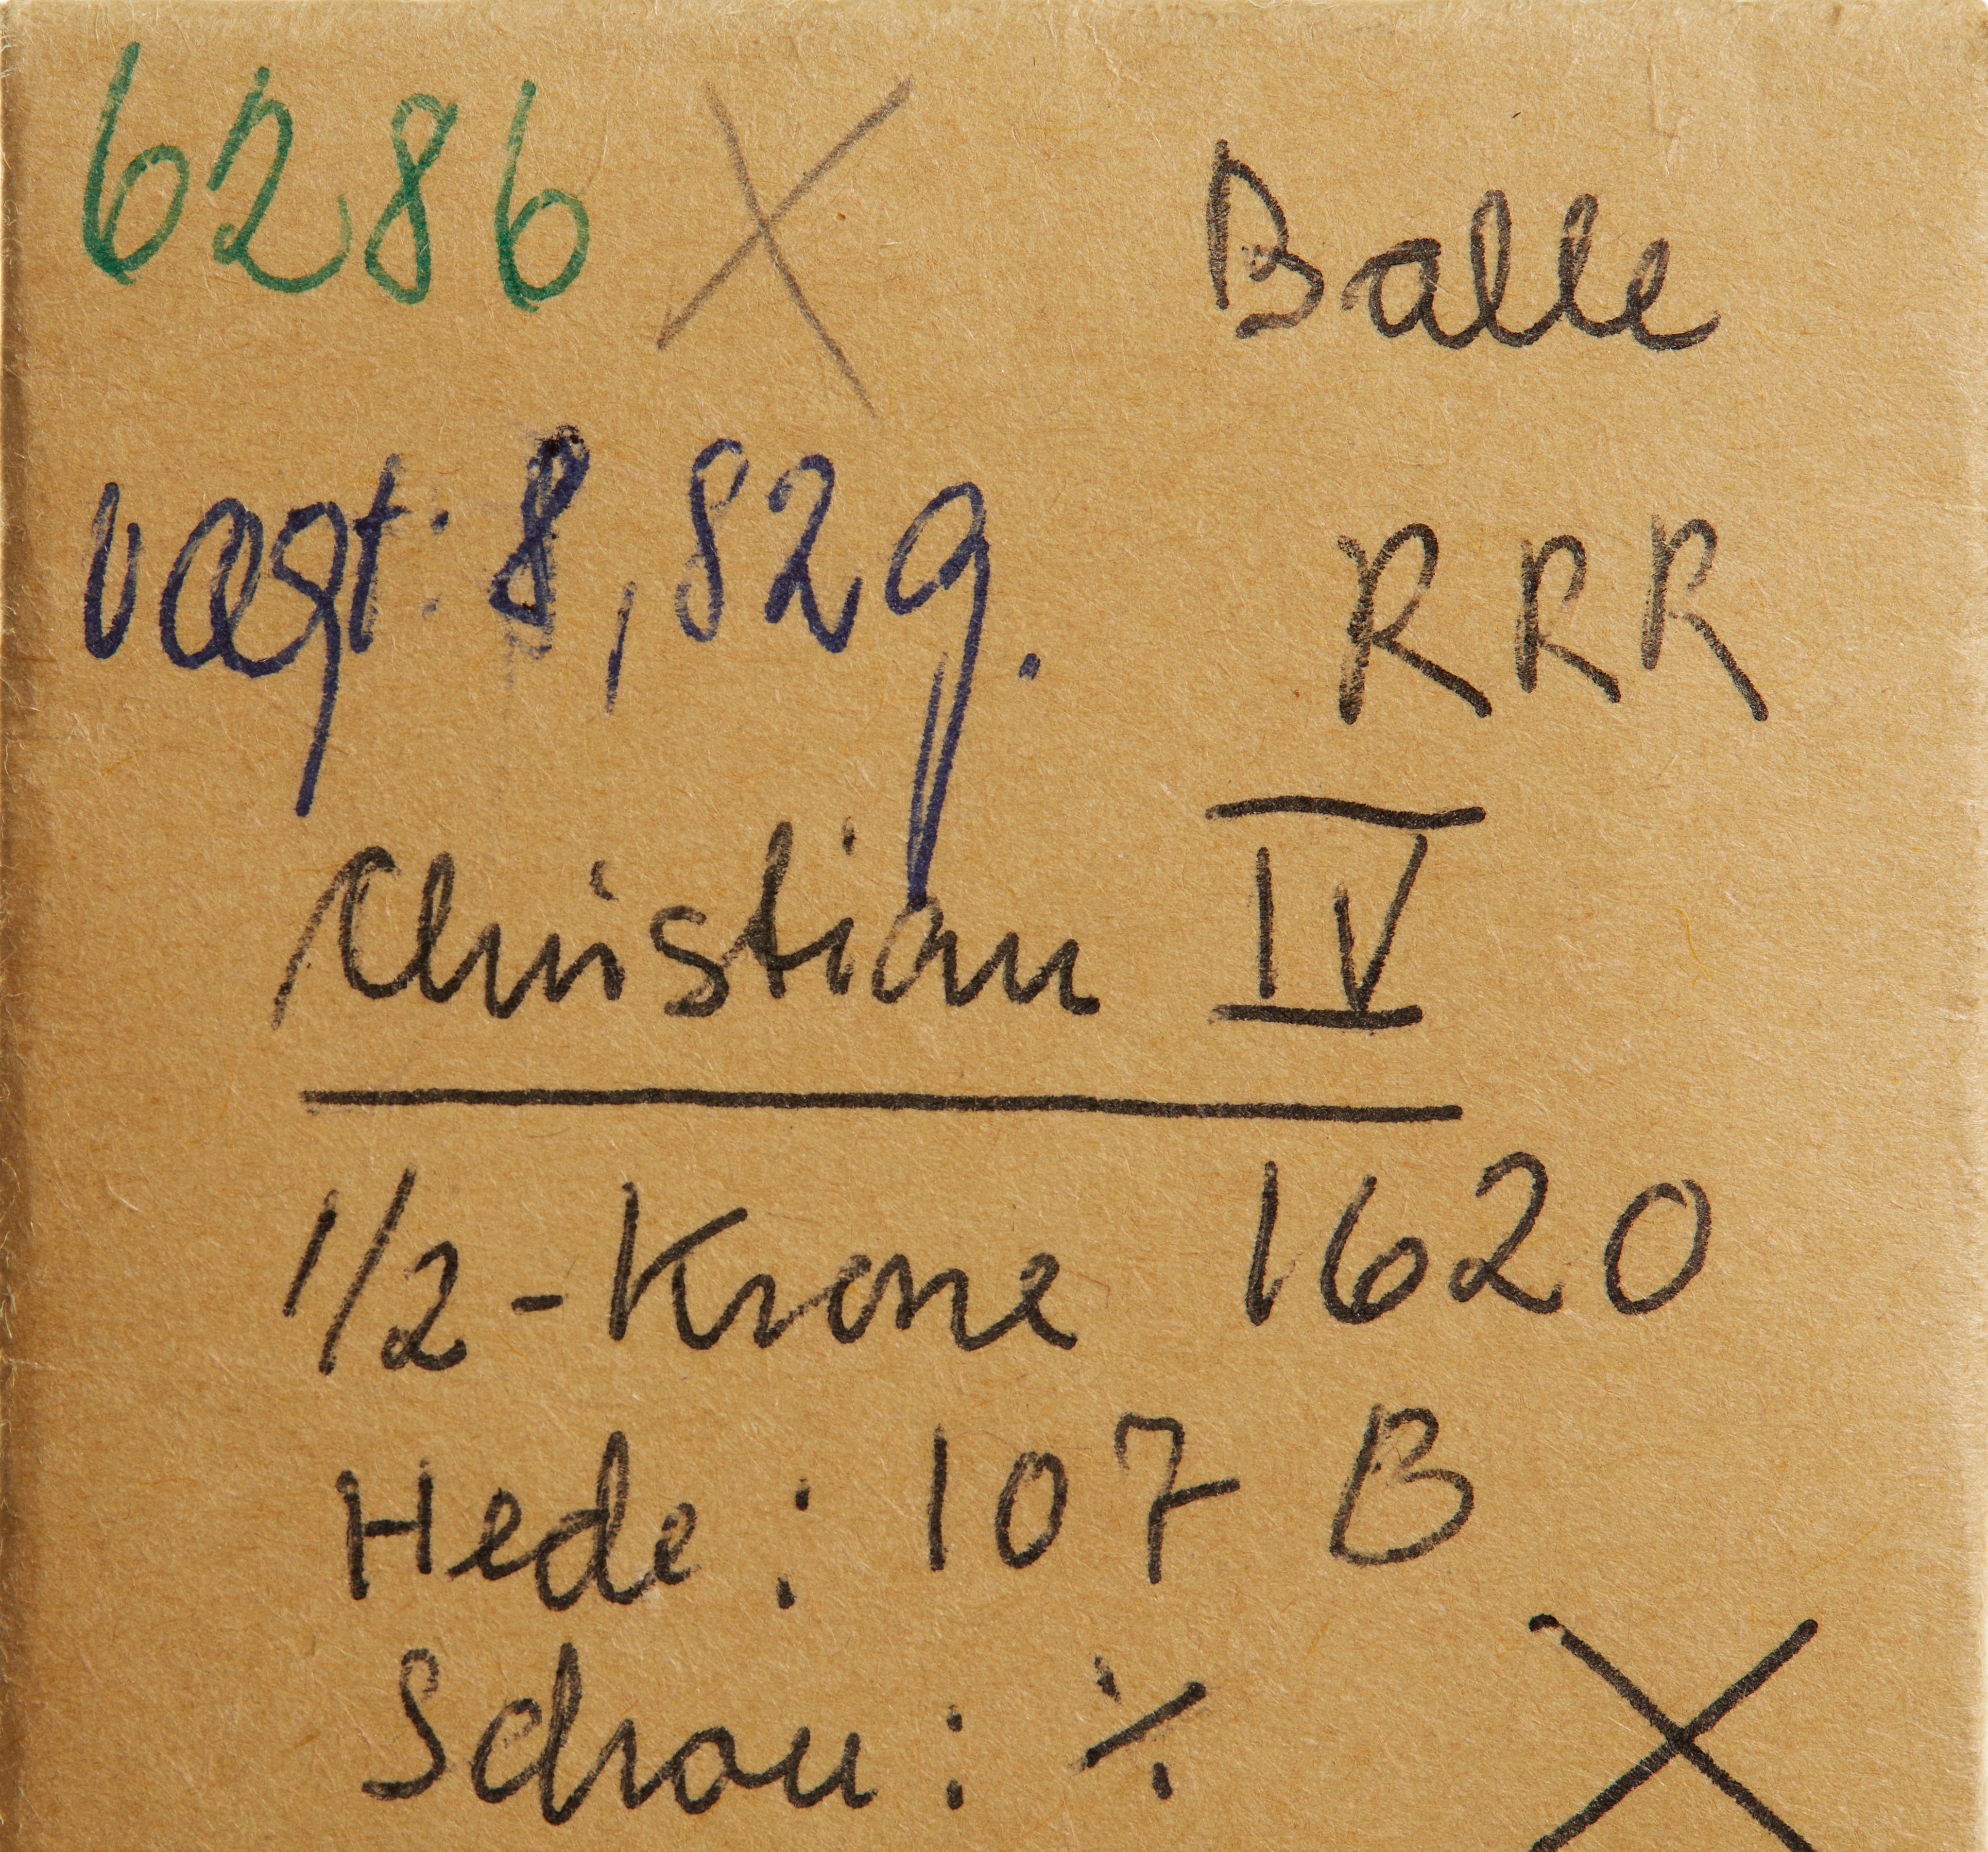 6286 X Balle
vægt: 8,82g. RRR
Christian IV
1/2-Krone 1620
Hede: 107 B
Schou: ⁒
X